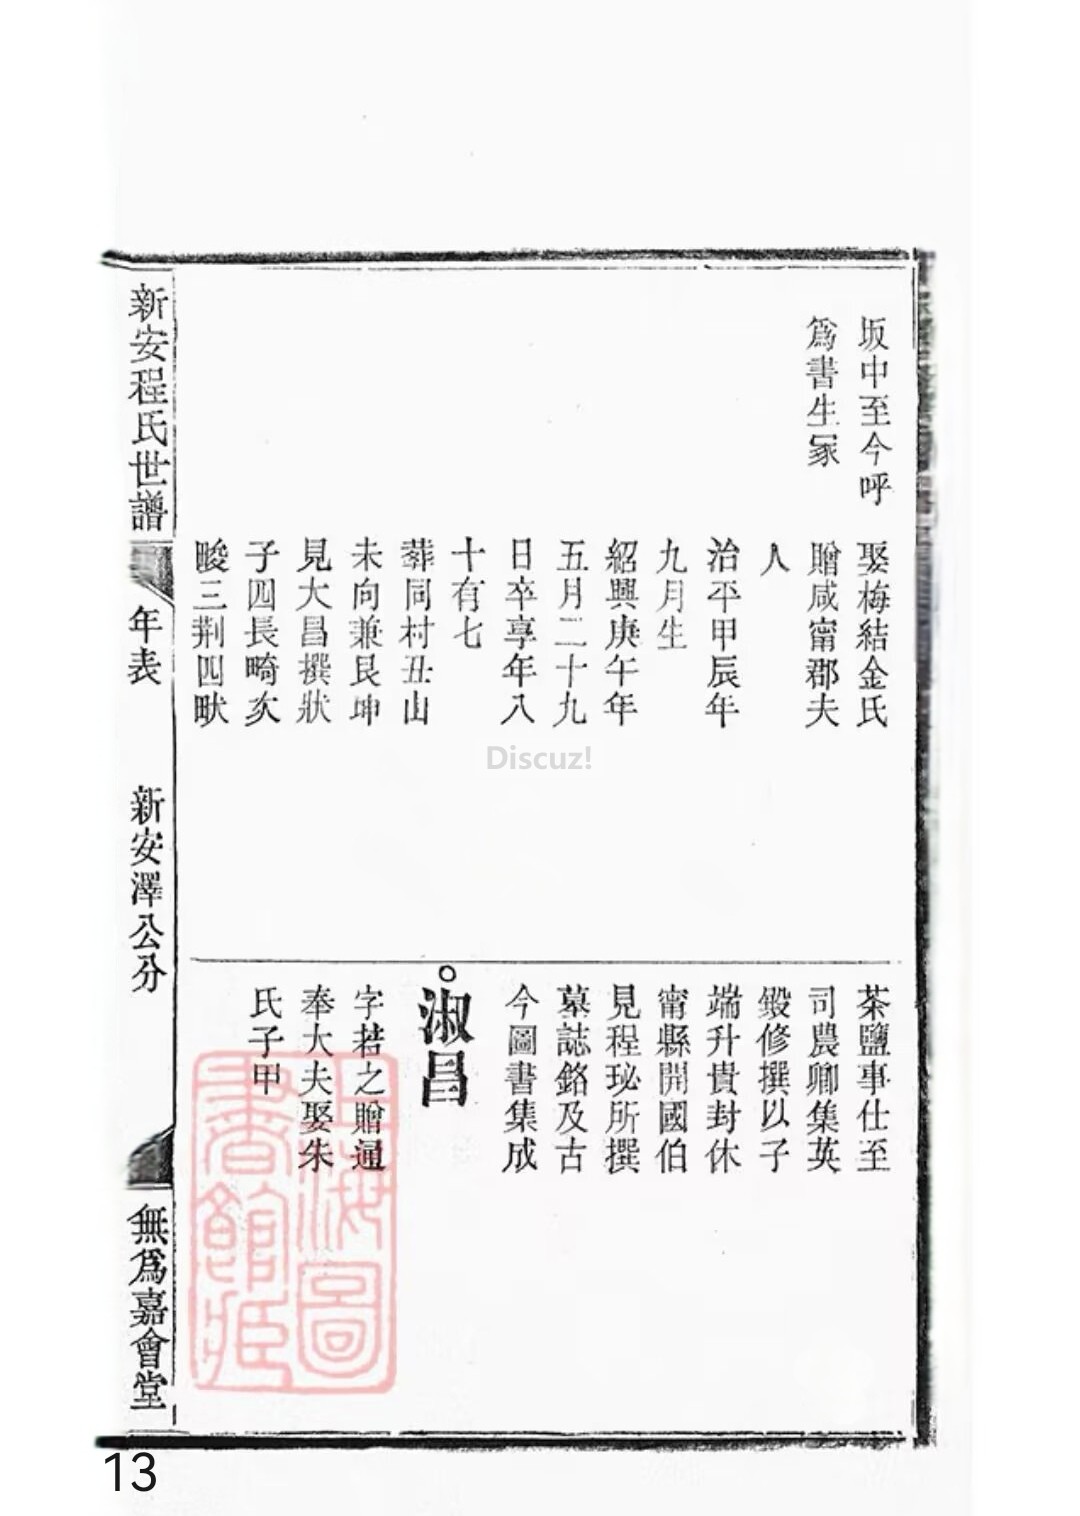 坂中至今呼
爲書生冢
娶梅結金氏
贈咸甯郡夫
人
治平甲辰年
九月生
紹興庚午年
五月二十九
日卒享年八
十有七
葬同村丑山
未向兼艮坤
見大昌撰狀
子四長畸次
畯三荆四畎
茶鹽事仕至
司農卿集英
殿修撰以子
端升貴封休
甯縣開國伯
見程珌所撰
墓誌銘及古
今圖書集成
淑昌
字若之贈通
奉大夫娶朱
氏子甲
新安程氏世譜
年表
新安澤公分
無爲嘉會堂
上海圖
書館藏
Discuz!
13